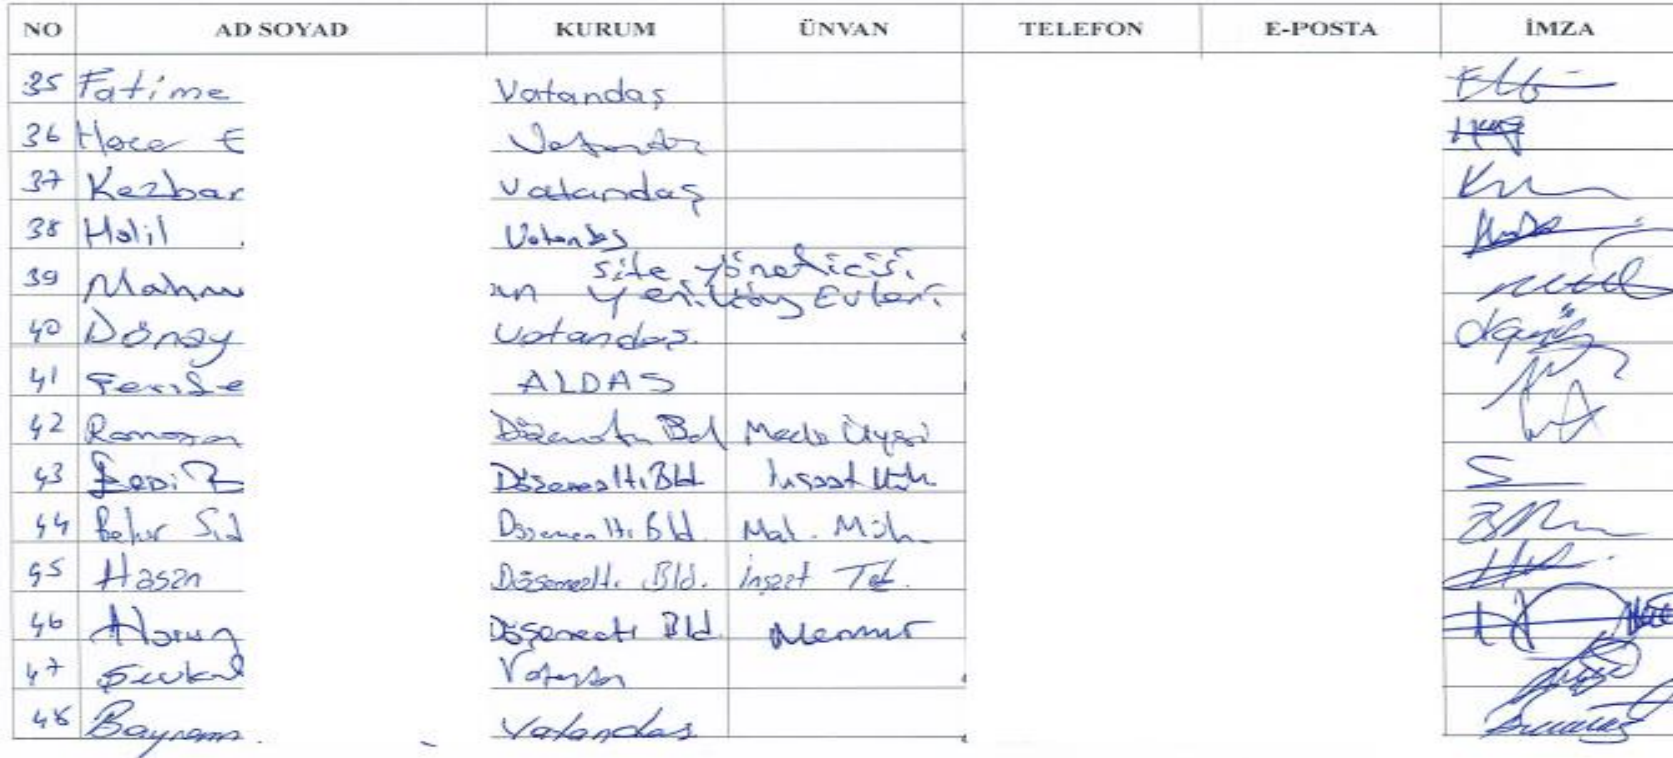 NO AD SOYAD KURUM ÜNVAN TELEFON E-POSTA İMZA
35 Fatime Vatandaş
36 Hacer E Vatandaş
37 Kezban Vatandaş
38 Halil Vatandaş
39 Mahmu Site yöneticisi
Yeniköy Evleri
40 Dönay Vatandaş
41 Feride ALDAS
42 Ramazan Döşemealtı Bel Meclis Üyesi
43 Döşemealtı Bld. İnşaat Müh.
44 Bekir Sıd Döşemealtı Bld. Mak. Müh.
45 Hasan Döşemealtı Bld. İnşaat Tek.
46 Harun Döşemealtı Bld. Memur
47 Şevket Vatandaş
48 Bayram Vatandaş